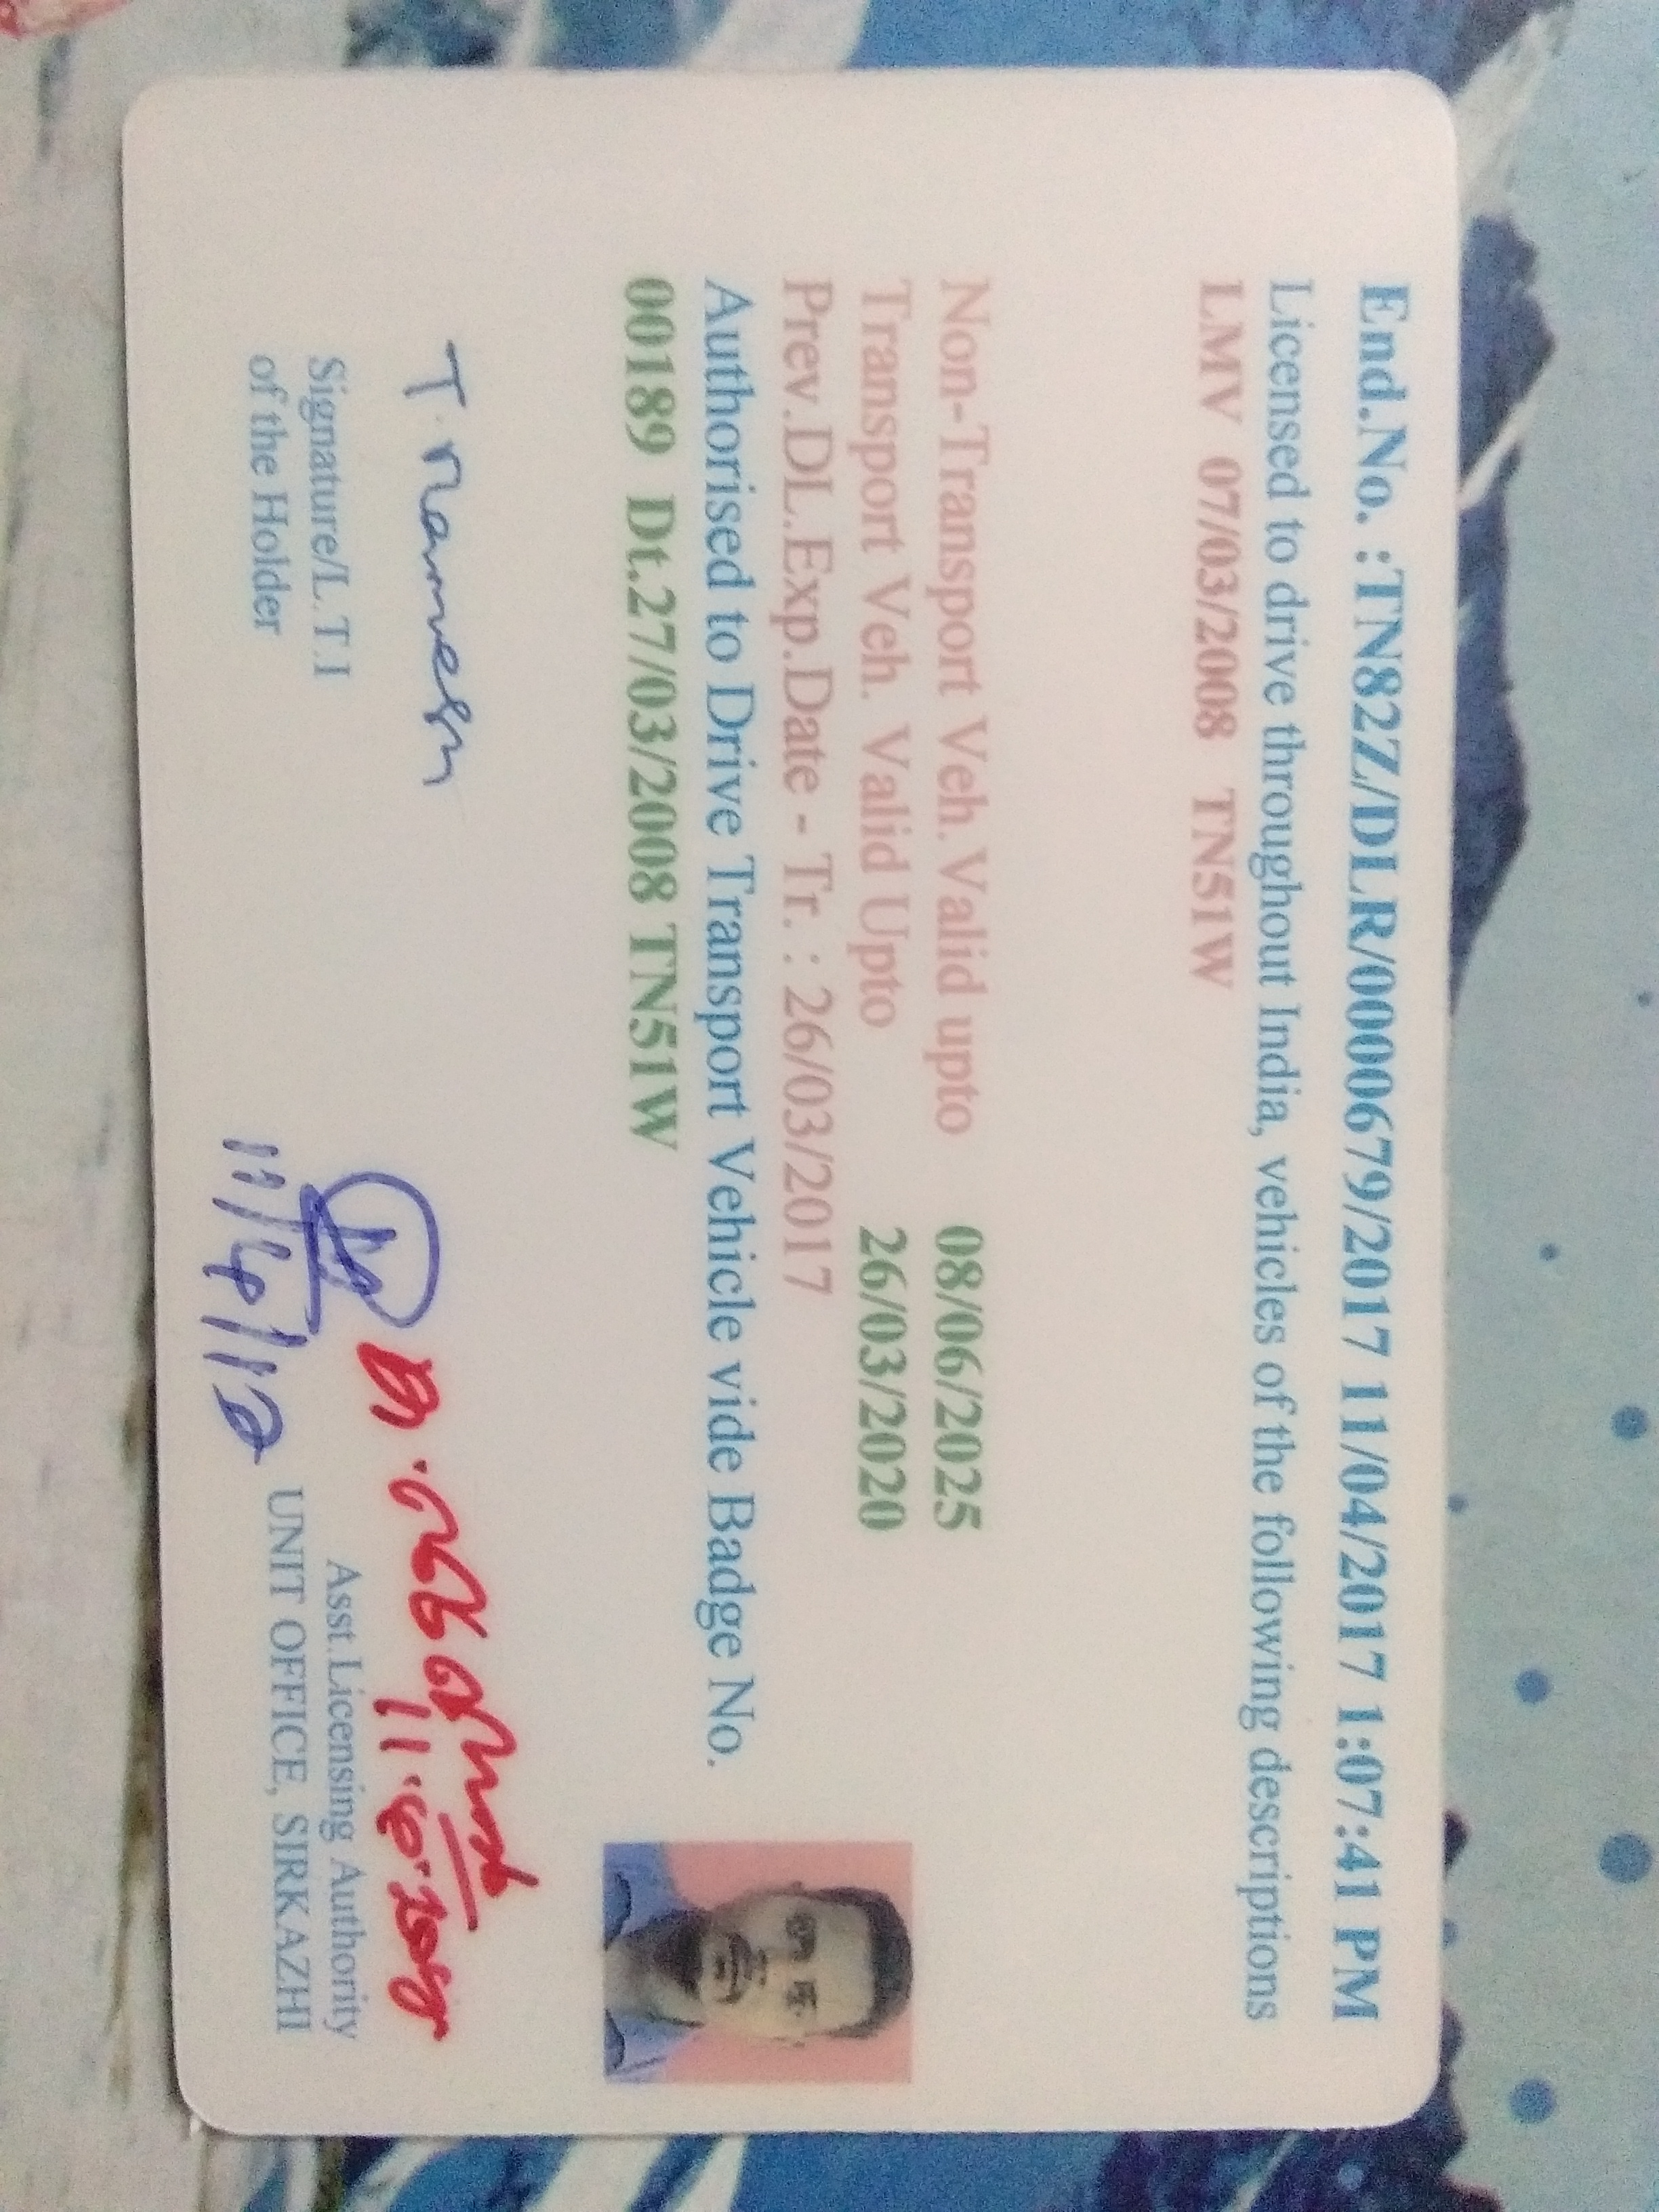 End.No. :TN82Z/DLR/0000679/2017 11/04/2017 1:07:41 PM
Licensed to drive throughout India, vehicles of the following descriptions
LMV 07/03/2008 TN51W
Non-Transport Veh. Valid upto 08/06/2025
Transport Veh. Valid Upto 26/03/2020
Prev.DL.Exp.Date - Tr. : 26/03/2017
Authorised to Drive Transport Vehicle vide Badge No.
00189 Dt.27/03/2008 TN51W
Signature/L.T.I
of the Holder
Asst.Licensing Authority
UNIT OFFICE, SIRKAZHI